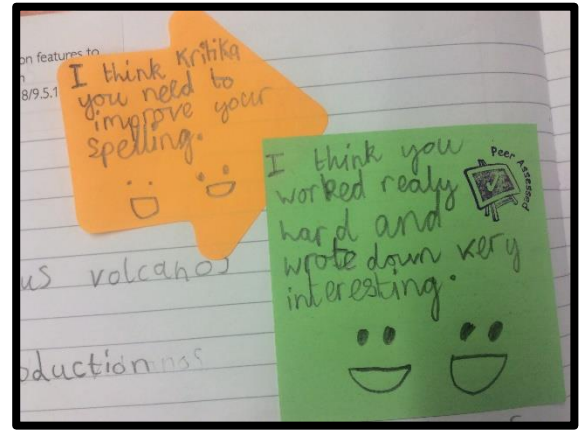 on features to
8/9.5.1
I think Kritika
you need to
improve your
spelling.
I think you
worked realy
hard and
wrote down very
interesting.
Peer Assessed
us volcanos
oduction